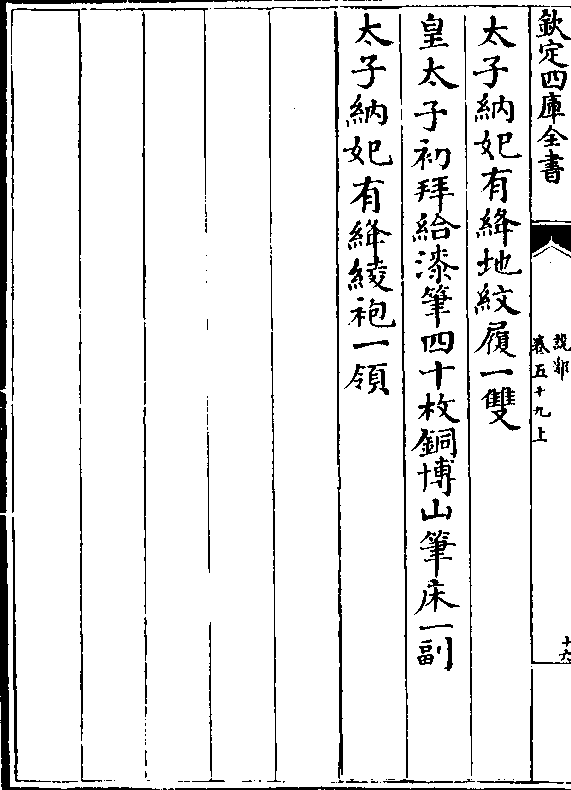 欽定四庫全書
說郛
卷五十九上
十六
太子納妃有絳地紋履一雙
皇太子初拜給漆筆四十枚銅博山筆床一副
太子納妃有絳綾袍一領